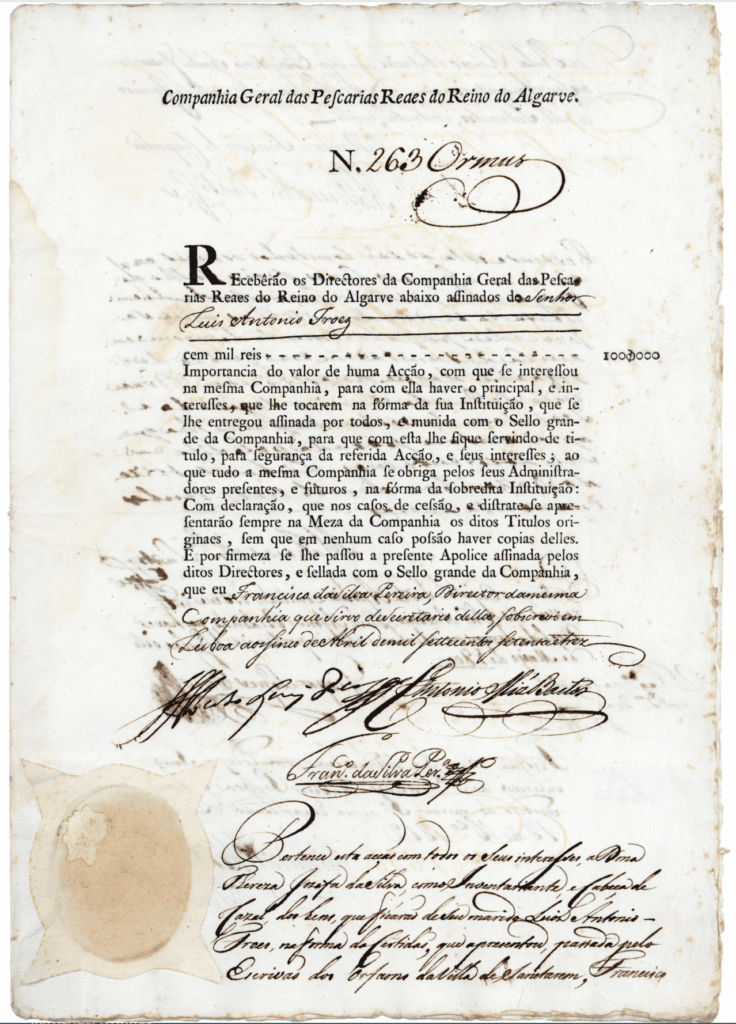 Companhia Geral das Peſcarias Reaes do Reino do Algarve.
N. 263 Ormus
REcebêrão os Directores da Companhia Geral das Peſca-
rias Reaes do Reino do Algarve abaixo aſſinados do Senhor
Luis Antonio Froes
cem mil reis - - - - - - - - - - - - - - - - - - - - - - - 100$000
Importancia do valor de huma Acção, com que ſe intereſſou
na meſma Companhia, para com ella haver o principal, e in-
tereſſes, que lhe tocarem na fórma da ſua Inſtituição, que ſe
lhe entregou aſſinada por todos, e munida com o Sello gran-
de da Companhia, para que com eſta lhe fique ſervindo de ti-
tulo, para ſegurança da referida Acção, e ſeus intereſſes; ao
que tudo a meſma Companhia ſe obriga pelos ſeus Adminiſtra-
dores preſentes, e futuros, na fórma da ſobredita Inſtituição:
Com declaração, que nos caſos de ceſsão, e diſtrate ſe apre-
ſentarão ſempre na Meza da Companhia os ditos Titulos ori-
ginaes, ſem que em nenhum caſo poſsão haver copias delles.
E por firmeza ſe lhe paſſou a preſente Apolice aſſinada pelos
ditos Directores, e ſellada com o Sello grande da Companhia,
que eu Francisco da Silva Pereira, Director da mesma
Companhia que sirvo de Secretario della sobscrevi em
Lisboa aos sinco de Abril de mil settecentos setenta e trez
Antonio
Fran.co da Silva Per.a
Pertence esta acçaõ com todos os Seus interesses, a Dona
Tereza Jozefa da Silva, como Inventariante e Cabeca de
Cazal, dos bens, que ficaraõ de seu marido Luis Antonio
Froes, na forma da Certidaõ, que aprezentou, passada pelo
Escrivaõ dos Orfaons da Villa de Santarem, Francisco